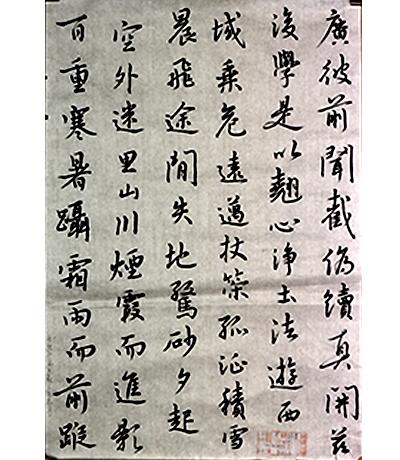 廣彼前聞截偽續真開茲
後學是以翹心淨土法遊西
域乘危遠邁杖策孤征積雪
晨飛途間失地驚砂夕起
空外迷里山川煙霞而進影
百重寒暑躡霜雨而前蹤